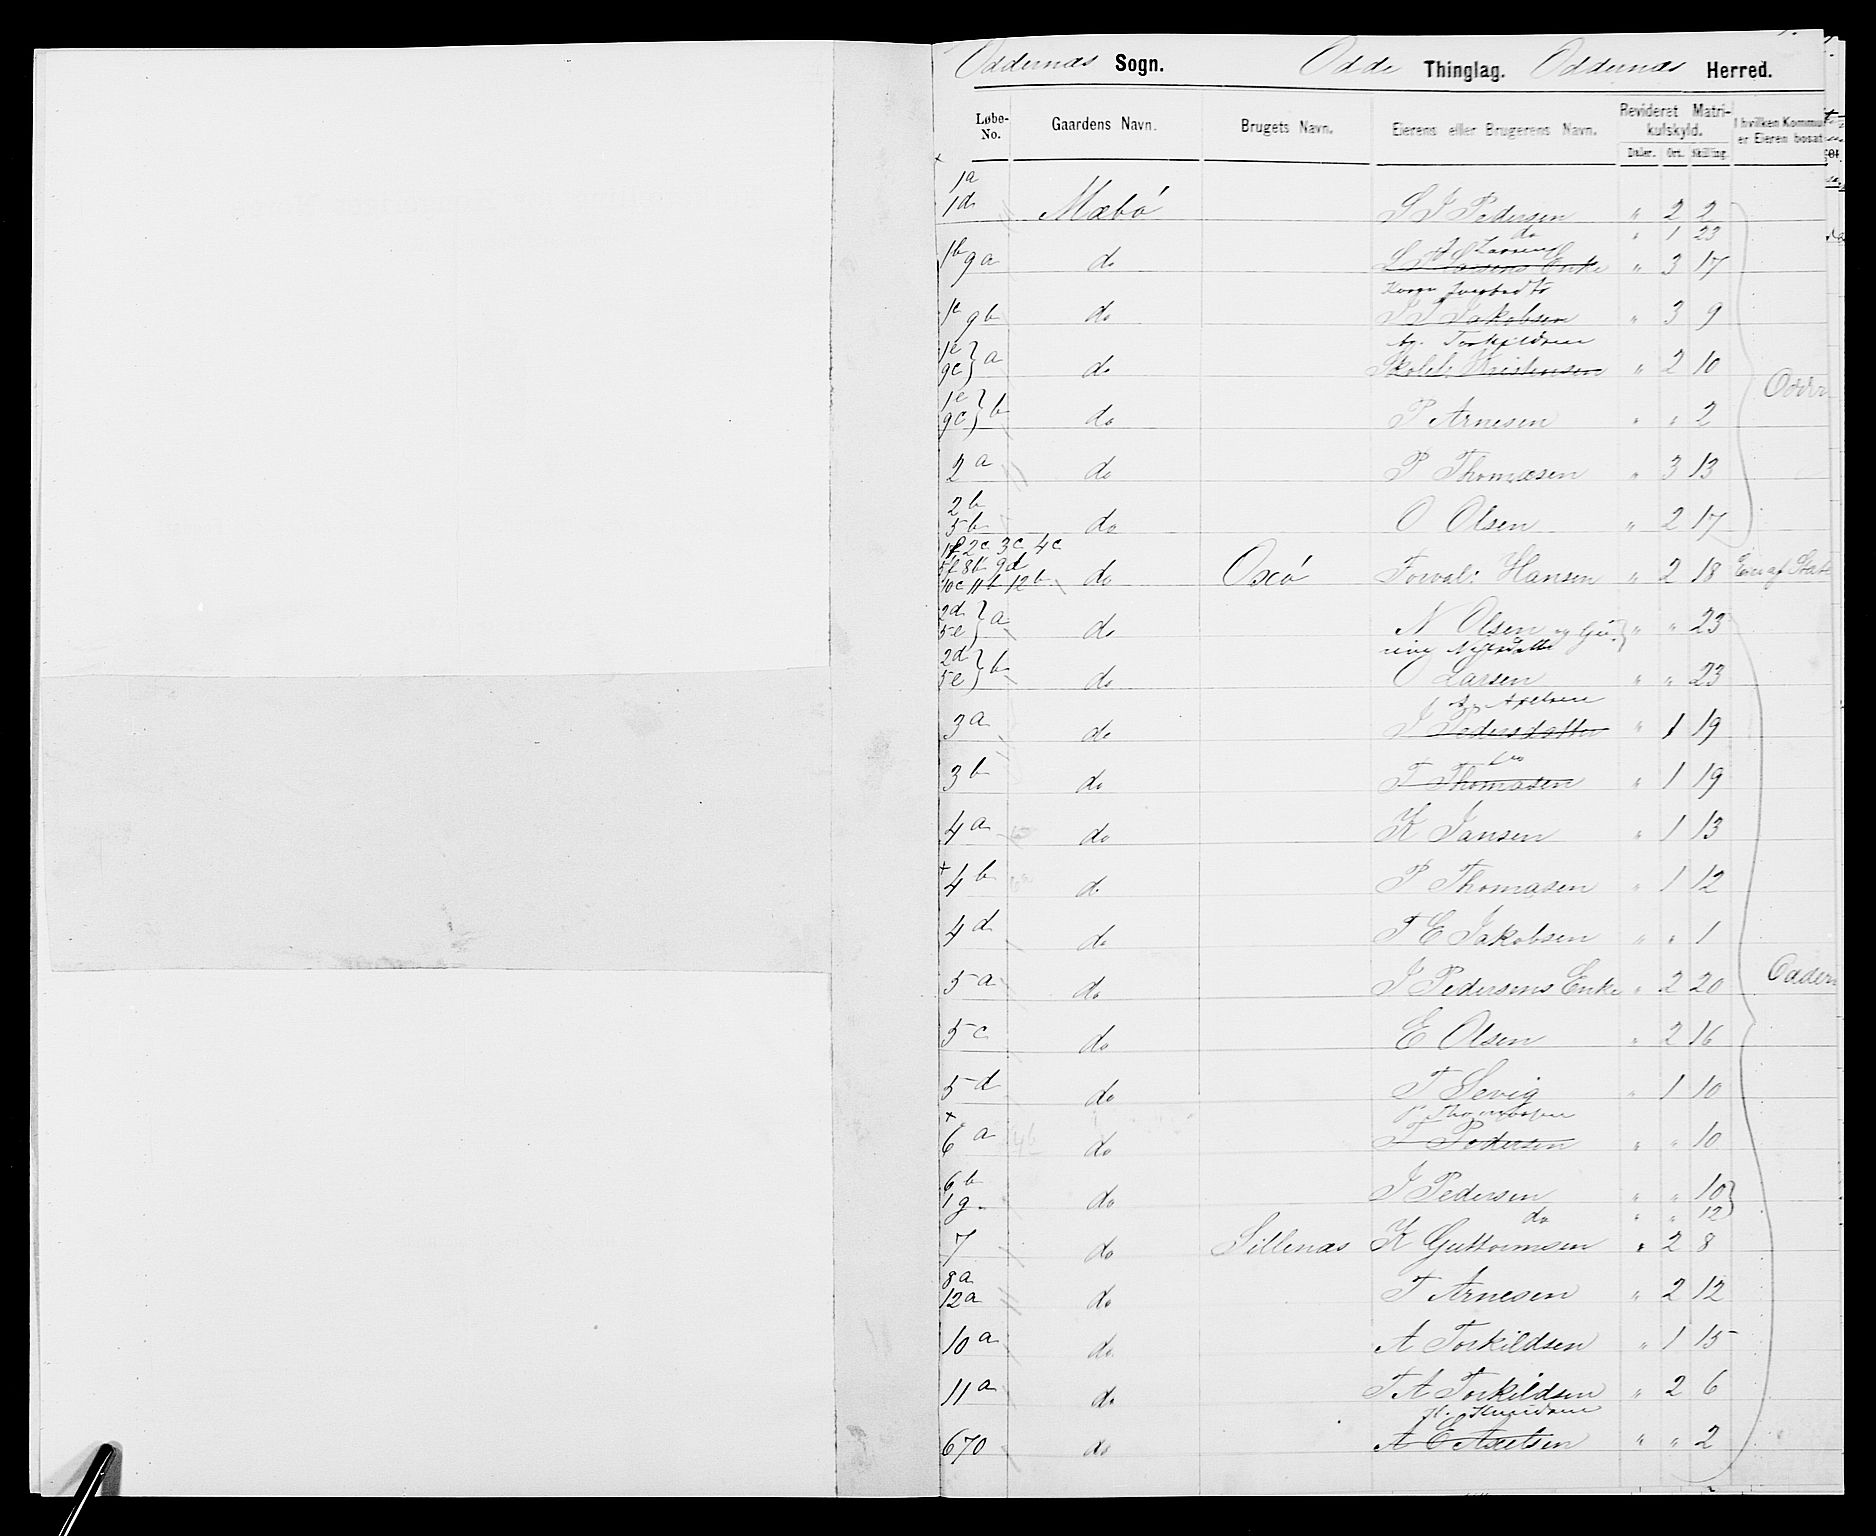 Oddernæs Sogn. Odde Thinglag. Oddernæs Herred.
Løbe-No. Gaardens Navn. Brugets Navn. Eierens eller Brugerens Navn. Revideret Matrikulskyld. I hvilken Kommu er Eieren bosat
Daler. Ort. Skilling.
1a
1d Mæbø S I Pedersen " 2 2
do " 1 23
1b 9a do Larsens Enke " 3 17
1c 9b do I I Jakobsen " 3 9
Torkildsen
1e 9c } a do Skolel. Kristensen " 2 10
1e 9c } b do P Arnesen " " 2
2a do P Thomæsen " 3 13
2b
5b do O Olsen " 2 17
1f 2c 3c 4c
5f 8b 9d
10c 11b 12b do Oxø Forval: Hansen " 2 18 Eies af Stat
2d 5e } a do N Olsen og " " 23
2d 5e } b do O Larsen " " 23
3a do I Pedersdatter " 1 19
3b do T Thomasen " 1 19
4a do K Jansen " 1 13
4b do P Thomasen " 1 12
4d do T E Jakobsen " " 1
5a do I Pedersens Enke " 2 20 Oddern
5c do E Olsen " 2 16
5d do T Sevig " 1 10
6a 4b do T Pedersen " " 10
6b
1g. do I Pedersen " " 10
do " " 12
7 do Sillenæs K Guttormsen " 2 8
8a
12a do T Arnesen " 2 12
10a do A Torkildsen " 1 15
11a do T A Torkildsen " 2 6
670 do A E Axelsen " " 2